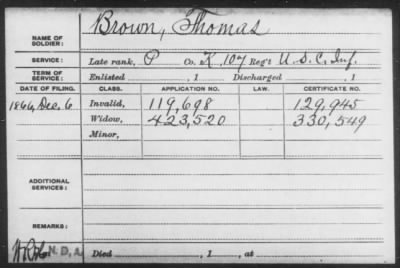 NAME OF SOLDIER: Brown, Thomas
SERVICE: Late rank, P Co. K, 107 Reg't U. S. C. Inf.
TERM OF SERVICE: Enlisted , 1 Discharged , 1
DATE OF FILING. CLASS. APPLICATION NO. LAW. CERTIFICATE NO.
1866, Dec. 6 Invalid, 119,698 129,945
Widow, 423,520 330,549
Minor,
ADDITIONAL SERVICES:
REMARKS:
N.D.A. Died , 1 , at